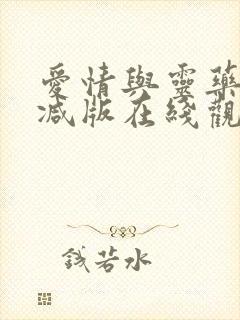 愛情與靈藥
減版在綫觀
錢若水